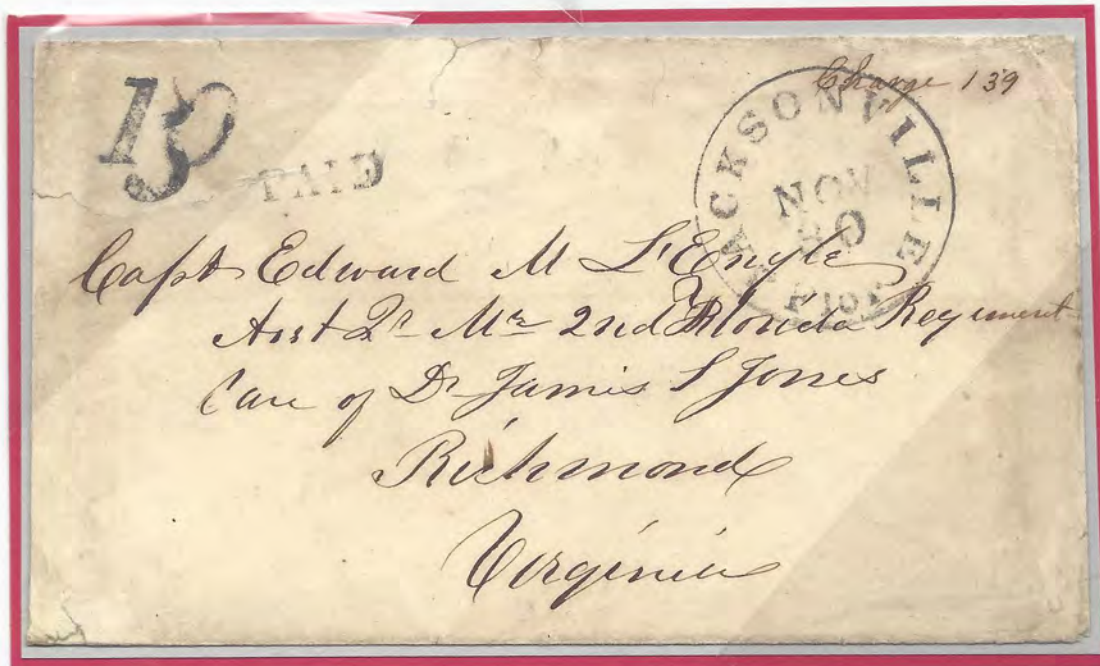 10
5
PAID
Charge 139
JACKSONVILLE
NOV
30
Flor
Capt Edward M L'Engle
Asst Qr Mr 2nd Florida Regiment
Care of Dr James S Jones
Richmond
Virginia